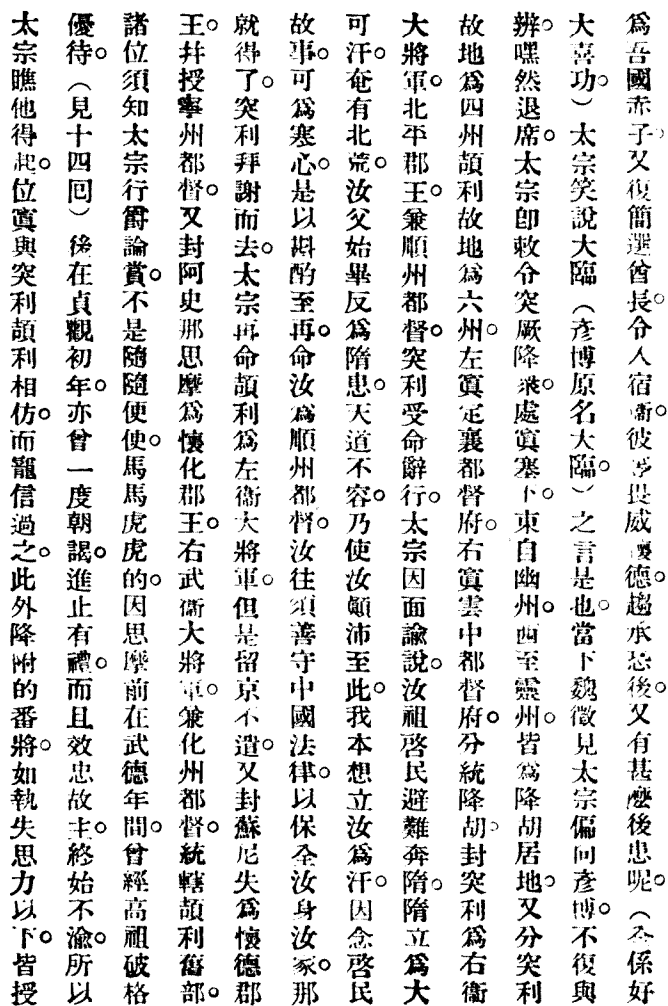 爲吾國赤子又復簡選酋長。令人宿衞。彼等畏威懷德。趨承恐後。又有甚麽後患呢。(全係好
大喜功)太宗笑說大臨(彥博原名大臨。)之言是也。當下魏徵見太宗偏向彥博。不復與
辨。嘿然退席。太宗卽敕令突厥降衆。處置塞下。東自幽州。西至靈州。皆爲降胡居地。又分突利
故地爲四州頡利故地爲六州。左置定襄都督府。右置雲中都督府。分統降胡。封突利爲右衞
大將軍。北平郡王。兼順州都督。突利受命辭行。太宗因面諭說。汝祖啓民避難奔隋。隋立爲大
可汗。奄有北荒。汝父始畢反爲隋患。天道不容。乃使汝顚沛至此。我本想立汝爲汗。因念啓民
故事。可爲寒心。是以斟酌至再。命汝爲順州都督。汝往須善守中國法律。以保全汝身汝家。那
就得了。突利拜謝而去。太宗再命頡利爲左衞大將軍。但是留京不遣。又封蘇尼失爲懷德郡
王。幷授寧州都督。又封阿史那思摩爲懷化郡王。右武衞大將軍。兼化州都督。統轄頡利舊部。
諸位須知太宗行爵論賞。不是隨隨便便。馬馬虎虎的。因思摩前在武德年間。曾經高祖破格
優待。(見十四回)後在貞觀初年。亦曾一度朝謁。進止有禮。而且效忠故主。終始不渝。所以
太宗瞧他得起。位置與突利頡利相仿。而寵信過之。此外降附的番將。如執失思力以下。皆授